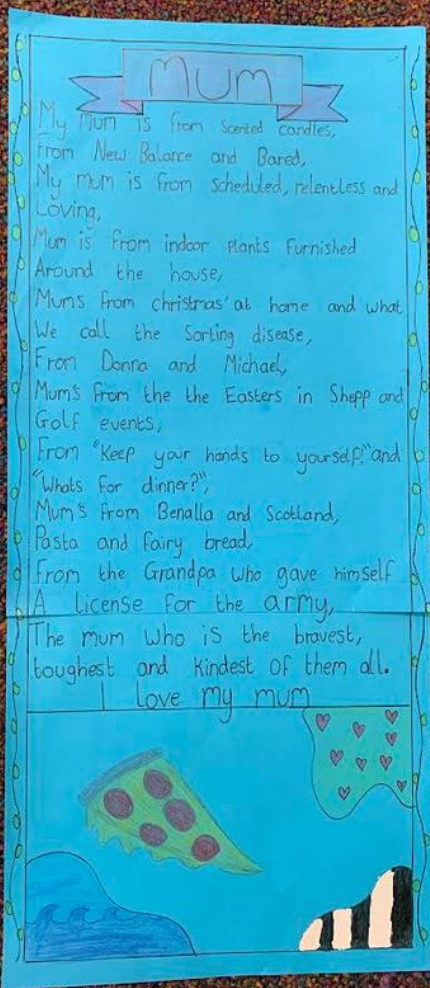 MUM
My Mum is from Scented candles,
From New Balance and Bared,
My mum is from scheduled, relentless and
Loving,
Mum is from indoor plants furnished
Around the house,
Mums from christmas' at home and what
We call the sorting disease,
From Donna and Michael,
Mum's from the the Easters in Shepp and
Golf events,
From "Keep your hands to yourself!" and
"Whats for dinner?",
Mum's from Benalla and Scotland,
Pasta and fairy bread,
From the Grandpa who gave himself
A license for the army,
The mum who is the bravest,
toughest and kindest of them all.
I love my mum